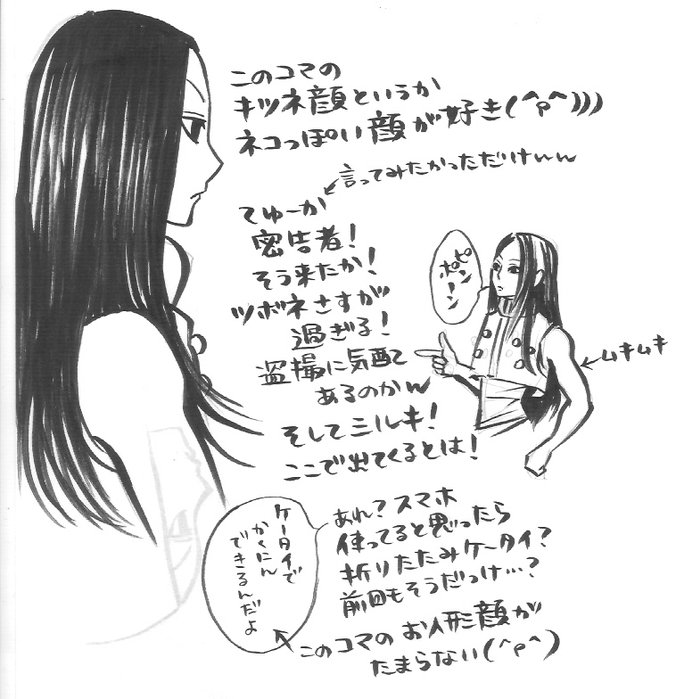 このコマの
キツネ顔というか
ネコっぽい顔が好き(^p^)))
言ってみたかっただけww
てゆーか
密告者!
そう来たか!
ツボネさすが
過ぎる!
盗撮に気配て
あるのかw
そしてミルキ!
ここで出てくるとは!
ピン
ポーン
ムキムキ
あれ?スマホ
使ってると思ったら
折りたたみケータイ?
前回もそうだっけ…?
ケータイで
かくにん
できるんだよ
このコマのお人形顔が
たまらない(^p^)